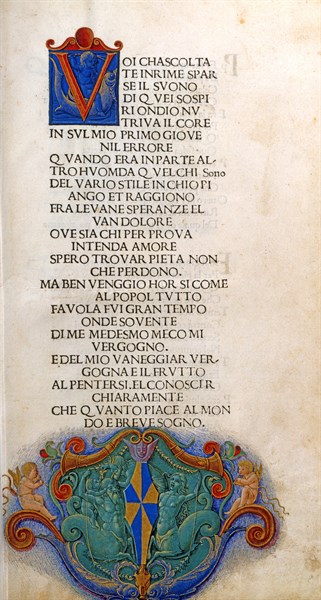 VOI CHASCOLTA
TE INRIME SPAR
SE IL SVONO
DI QVEI SOSPI
RI ONDIO NV
TRIVA IL CORE
IN SVL MIO PRIMO GIOVE
NIL ERRORE
QVANDO ERA IN PARTE AL
TRO HVOM DA QVEL CHI Sono
DEL VARIO STILE IN CHIO PI
ANGO ET RAGGIONO
FRA LE VANE SPERANZE EL
VAN DOLORE
OVE SIA CHI PER PROVA
INTENDA AMORE
SPERO TROVAR PIETA NON
CHE PERDONO.
MA BEN VENGGIO HOR SI COME
AL POPOL TVTTO
FAVOLA FVI GRAN TEMPO
ONDE SOVENTE
DI ME MEDESMO MECO MI
VERGOGNO.
E DEL MIO VANEGGIAR VER
GOGNA E IL FRVTTO
AL PENTERSI. EL CONOSCIR
CHIARAMENTE
CHE QVANTO PIACE AL MON
DO E BREVE SOGNO.